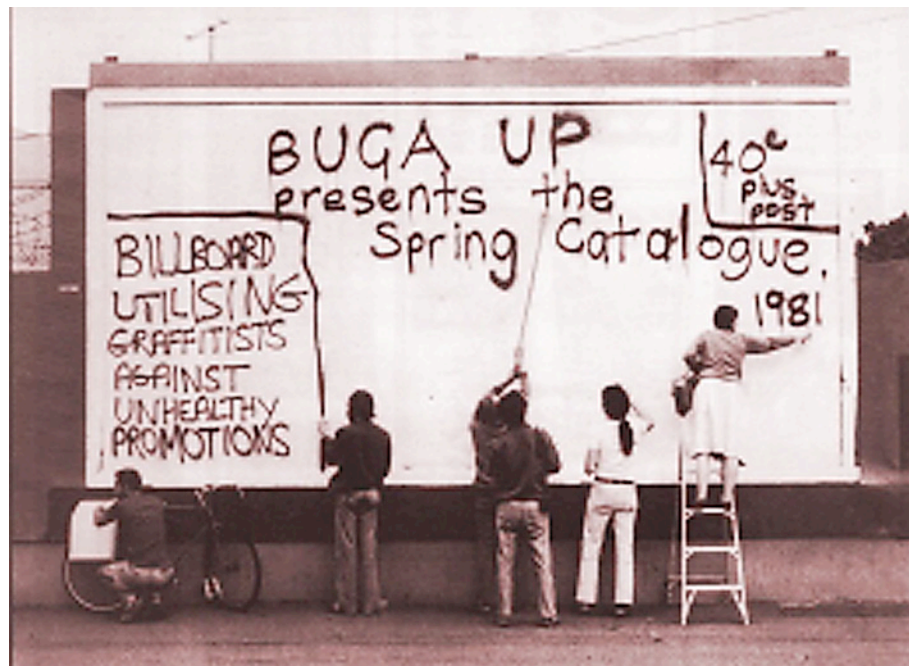 BUGA UP
presents the
Spring Catalogue,
1981
40c
plus
post
BILLBOARD
UTILISING
GRAFFITISTS
AGAINST
UNHEALTHY
PROMOTIONS